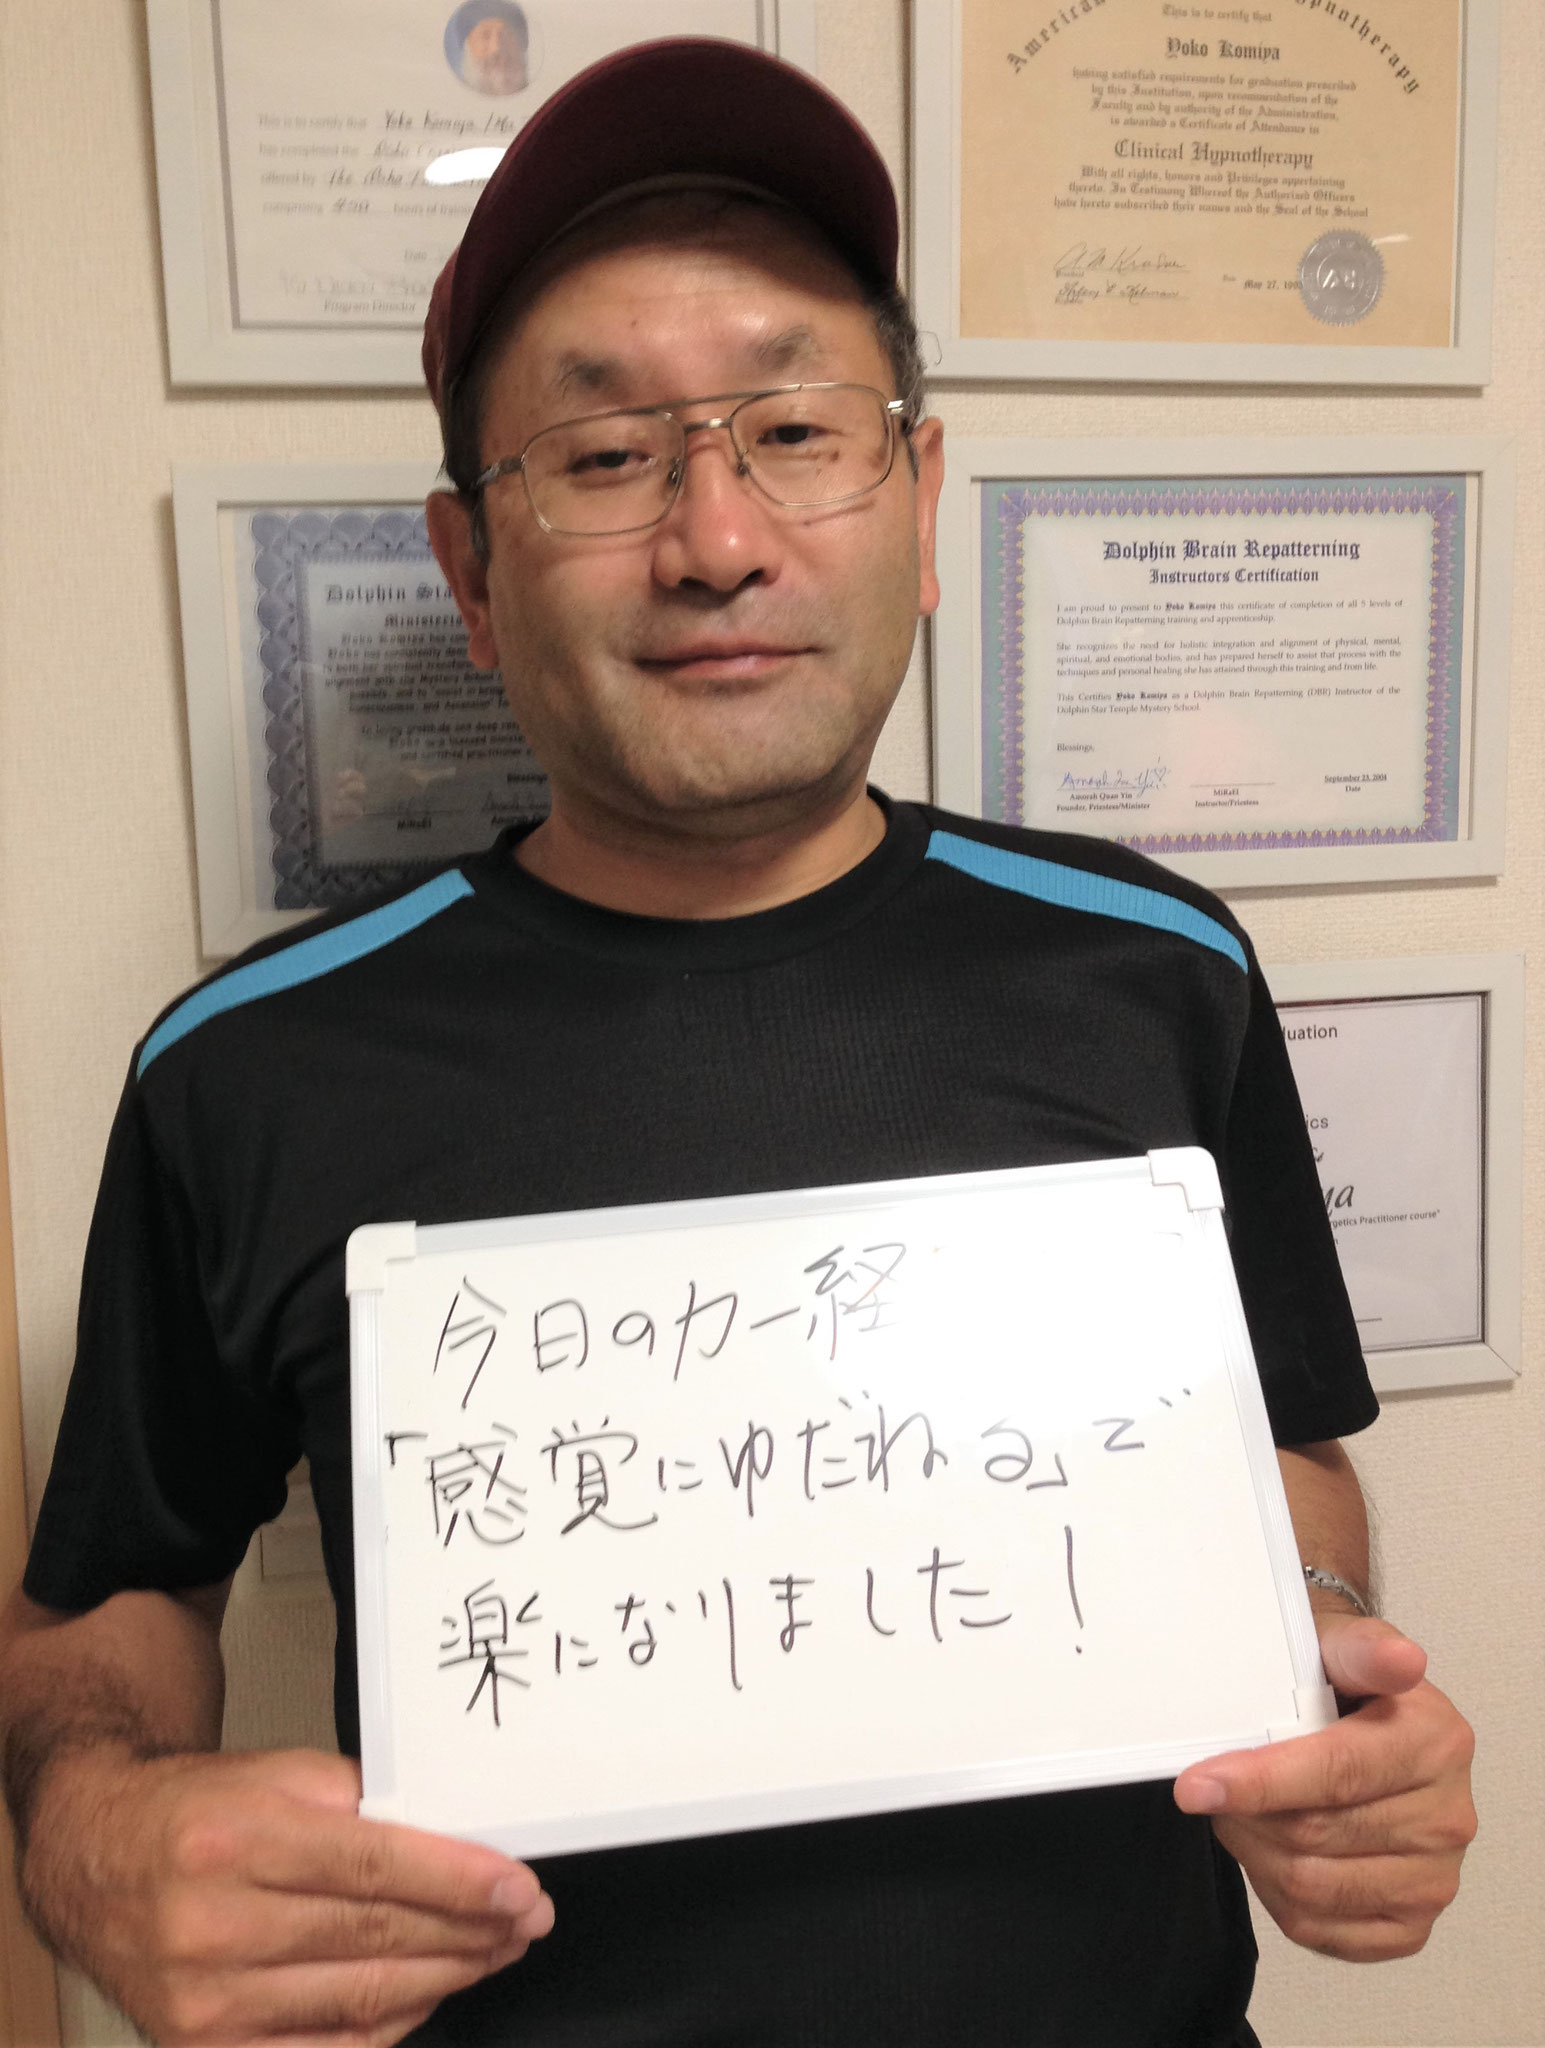 This is to certify that Yoko Komiya / Ma
has completed the
offered by The Osho
comprising hours of training
Date
Program Director
American Hypnotherapy
This is to certify that
Yoko Komiya
having satisfied requirements for graduation prescribed
by this Institution, upon recommendation of the
Faculty and by authority of the Administration,
is awarded a Certificate of Attendance in
Clinical Hypnotherapy
With all rights, honors and Privileges appertaining
thereto. In Testimony Whereof the Authorized Officers
have hereto subscribed their names and the Seal of the School
President
Date May 27, 199
Dolphin Sta
Ministeria
Yoko Komiya has com
Blessings
MiRaEl
Dolphin Brain Repatterning
Instructors Certification
I am proud to present to Yoko Komiya this certificate of completion of all 5 levels of
Dolphin Brain Repatterning training and apprenticeship.
She recognizes the need for holistic integration and alignment of physical, mental,
spiritual, and emotional bodies, and has prepared herself to assist that process with the
techniques and personal healing she has attained through this training and from life.
This Certifies Yoko Komiya as a Dolphin Brain Repatterning (DBR) Instructor of the
Dolphin Star Temple Mystery School.
Blessings,
Amorah Quan Yin
Founder, Priestess/Minister
MiRaEl
Instructor/Priestess
September 23, 2004
Date
uation
ics
ya
rgetics Practitioner course"
今日のカー経
「感覚にゆだねる」で
楽になりました！